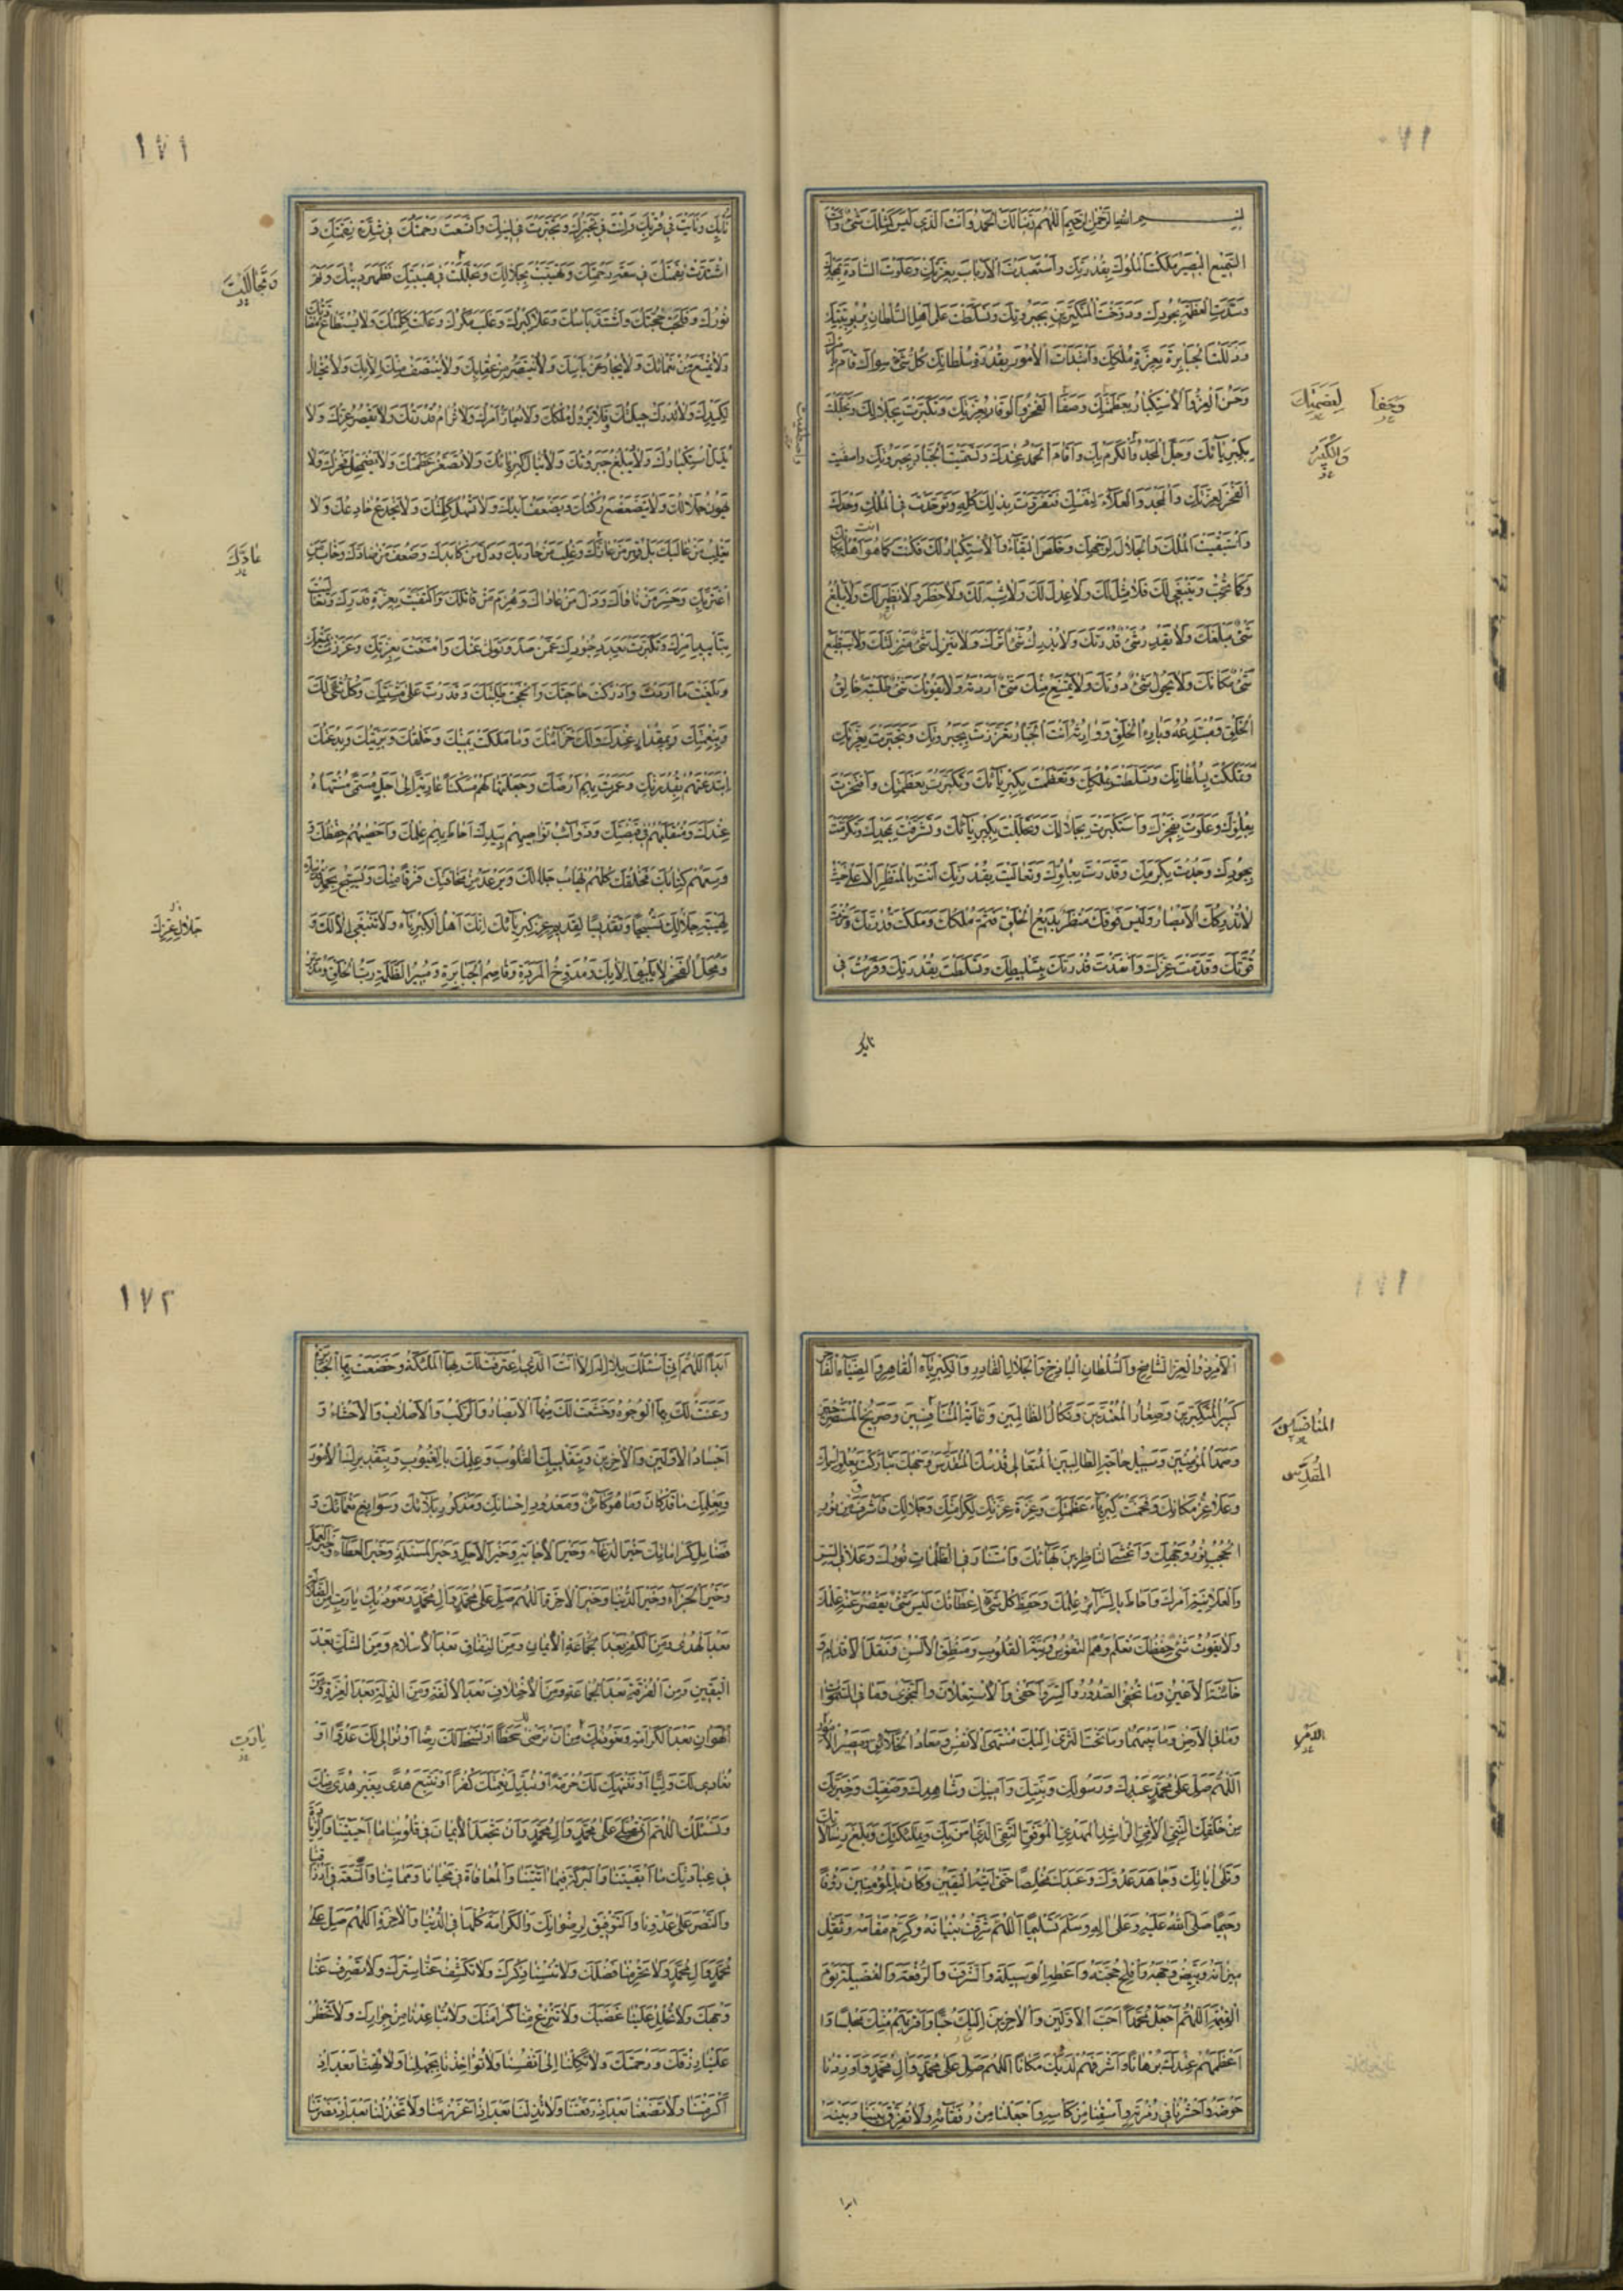 بسم الله الرحمن الرحيم اللهم ربنا لك الحمد وانت الذي ليس كمثلك شيء وانت
السميع البصير ملكت الملوك بقدرتك واستعبدت الارباب بعزتك وعلوت السادة بمجدك
وسدت العظمة بجودك ودوخت المتكبرين بجبروتك وتسلطت على اهل السلطان بربوبيتك
وذللت الجبابرة بعزة ملكك وابتدات الامور بقدرة سلطانك كل شيء سواك قام بامرك
وحسن العز والاستكبار بعظمتك وصفا الفخر والوقار بعزتك وتكبرت بجلالك وتجللت
بكبريائك وجل المجد والكرم بك واقام الحمد عندك وتسميت الجبار بجبروتك واصطفيت
الفخر لعزتك والمجد والعلاء لنفسك فتفردت بذلك كله وتوحدت في الملك وحدك
واستبقيت الملك والجلال لوجهك وخلص البقاء والاستكبار لك فكنت كما انت هو اهله
وكما تحب وينبغي لك فلا مثل لك ولا عدل لك ولا شبه لك ولا خطر ولا نظير لك ولا يبلغ
شيء مبلغك ولا يقدر شيء قدرتك ولا يدرك شيء اثرك ولا ينزل شيء منزلتك ولا يستطيع
شيء مكانك ولا يحول شيء دونك ولا يمتنع منك شيء اردته ولا يفوتك شيء طلبته خالق
الخلق ومبتدعه وبارئ الخلق ووارثه انت الجبار تعززت بجبروتك وتجبرت بعزتك
وتملكت بسلطانك وتسلطت بملكك وتعظمت بكبريائك وتكبرت بعظمتك وافتخرت
بعلوك وعلوت بفخرك واستكبرت بجلالك وتجللت بكبريائك وتشرفت بمجدك وتكرمت
بجودك وجدت بكرمك وقدرت بعلوك وتعاليت بقدرتك انت بالمنظر الاعلى حيث
لا تدركك الابصار وليس فوقك منظر بديع الخلق فتم ملكك وملكت قدرتك
قوتك وقدمت عزك وانفذت قدرتك بتسليطك وتسلطت بقدرتك وقربت في
لعظمتك
والكبر
نايك
١٧١
نايك ونايت في قربك ولنت في تجبرك وتجبرت في لينك واتسعت رحمتك في شدة نقمتك و
اشتدت نقمتك في سعة رحمتك وتهيبت بجلالك وتجللت في هيبتك فظهر دينك وتم
نورك وفلجت حجتك واشتد باسك وعلا كبرك وغلب مكرك وعلت كلمتك ولا يستطاع
ولا يمتنع من نقماتك ولا يجار من باسك ولا ينتصر من عقابك ولا ينتصف منك الا بك ولا يحتال
لكيدك ولا تدرك حيلتك ولا يزول ملكك ولا يعاز امرك ولا ترام قدرتك ولا يقصر عزك ولا
يذل استكبارك ولا تبلغ جبروتك ولا ينال كبرياؤك ولا تصغر عظمتك ولا يضمحل فخرك ولا
يهون جلالك ولا يتضعضع ركنك ولا تضعف ايدك ولا تسفل كلمتك ولا يخدع خادعك ولا
يغلب من غالبك بل قهر من عازك وغلب من حاربك وذل من كايدك وضعف من ضادك وخاب من
اغتر بك وخسر من ناواك وذل من عاداك وهزم من قاتلك واكتفيت بعزة قدرتك وتعاليت
بتاييد امرك وتكبرت بعدد جنودك عمن صد وتولى عنك وامتنعت بعزتك وعززت
وبلغت ما اردت وادركت حاجتك وانجحت طلبتك وقدرت على مشيتك وكل شيء لك
وبنعمتك وبمقدار عندك ولك خزائنك وما ملكت يمينك وخلقك وبريتك وبدعتك
ابتدعتهم بقدرتك وعمرت بهم ارضك وجعلتها لهم مسكنا عارية الى اجل مسمى منتهاه
عندك ومنقلبهم في قبضتك وذوائب نواصيهم بيدك احاط بهم علمك واحصاهم حفظك و
وسعهم كتابك فخلقك كلهم يهاب جلالك ويرعد من مخافتك فرقا منك ويسبح بحمد
لهيبة جلالك تسبيحا وتقديسا لقديم عز كبريائك انك اهل الكبرياء ولا تنبغي الا لك و
ومحل الفخر لا يليق الا بك ومدوخ المردة وقاصم الجبابرة ومبير الظلمة رب الخلق
وتجاللت
عادك
جلال عزك
١٧١
الامر ذو العز الشامخ والسلطان الباذخ والجلال القادر والكبرياء القاهر والضياء الفاخر
كبير المتكبرين وصغار المعتدين ونكال الظالمين وغاية المتنافسين وصريخ المستصرخين
وصمد المؤمنين وسبيل حاجة الطالبين المتعالي قدسك المقدس وجهك تباركت بعلو اسمك
وعلا عز مكانك وفخمت كبرياء عظمتك وعزة عزتك لكرامتك وجلالك فاشرق من نور
الحجب نور وجهك واغشى الناظرين بهاؤك واستنار في الظلمات نورك وعلا في السر
والعلانية امرك واحاط بالسرائر علمك وحفظ كل شيء احصاؤك ليس شيء يقصر عنه علمك
ولا يفوت شيء حفظك تعلم وهم النفوس ونية القلوب ومنطق الالسن ونقل الاقدام و
خائنة الاعين وما تخفي الصدور والسر واخفى والاستعلان والنجوى وما في السموات
وما في الارض وما بينهما وما تحت الثرى اليك منتهى الانفس ومعاد الخلائق ومصير الامور
اللهم صل على محمد عبدك ورسولك ونبيك وامينك وشاهدك وصفيك وخيرتك
من خلقك النبي الامي الراشد المهدي الموفق التقي الذي امن بك وبملائكتك وبلغ رسالاتك
وتلى اياتك وجاهد عدوك وعبدك مخلصا حتى اتاه اليقين وكان بالمؤمنين رؤفا
رحيما صلى الله عليه وعلى اله وسلم تسليما اللهم شرف بنيانه وكرم مقامه وثقل
ميزانه وبيض وجهه وافلج حجته واعطه الوسيلة والشرف والرفعة والفضيلة يوم
القيمة اللهم اجعل محمدا احب الاولين والاخرين اليك حبا واقربهم منك مجلسا وا
اعظمهم عندك برهانا واشرفهم لديك مكانا اللهم صل على محمد وال محمد واوردنا
حوضه واحشرنا في زمرته واسقنا من كاسه واجعلنا من رفقائه ولا تفرق بيننا وبينه
المنافسين
المقدس
الامر
ابدا
١٧٢
ابدا اللهم اني اسئلك بلا اله الا انت الذي اعترفت لك بها الملئكة وخضعت بها الجبابرة
وعنت لك بها الوجوه وخشعت لك منها الابصار والركب والاصلاب والاحشاء و
اجساد الاولين والاخرين وبتقليبك القلوب وعلمك بالغيوب وبتقديرك الامور
وبعلمك ما قد كان وما هو كائن ومعدود احسانك ومذكور بلائك وسوابغ نعمائك و
فضايل كراماتك خير الدعاء وخير الاجابة وخير الاجل وخير المسئلة وخير العطاء وخير العمل
وخير الجزاء وخير الدنيا وخير الاخرة اللهم صل على محمد وال محمد ونعوذ بك يا رب من الضلالة
بعد الهدى ومن الكفر بعد جماعة الايمان ومن النفاق بعد الاسلام ومن الشك بعد
اليقين ومن الفرقة بعد الجماعة ومن الاختلاف بعد الالفة ومن الذلة بعد العزة ومن
الهوان بعد الكرامة ونعوذ بك من ان نرضى لك سخطا او نسخط لك رضا او نوالي لك عدوا او
نعادي لك وليا او ننتهك لك حرمة او نبدل نعمتك كفرا او نتبع هوى بغير هدى منك
ونسئلك اللهم ان تصلي على محمد وال محمد وان تجعل الايمان في قلوبنا ما احييتنا والزيادة
في عبادتك ما ابقيتنا والبركة فيما اتيتنا والمعافاة في محيانا ومماتنا والسعة في ارزاقنا
والنصر على عدونا والتوفيق لرضوانك والكرامة كلها في الدنيا والاخرة اللهم صل على
محمد وال محمد ولا تحرمنا فضلك ولا تنسنا ذكرك ولا تكشف عنا سترك ولا تصرف عنا
وجهك ولا تحلل علينا غضبك ولا تنزع منا كرامتك ولا تباعدنا من جوارك ولا تحظر
علينا رزقك ورحمتك ولا تكلنا الى انفسنا ولا تؤاخذنا بجهلنا ولا تهنا بعد اذ
اكرمتنا ولا تضعنا بعد اذ رفعتنا ولا تذلنا بعد اذ اعززتنا ولا تخذلنا بعد اذ نصرتنا
يا رب